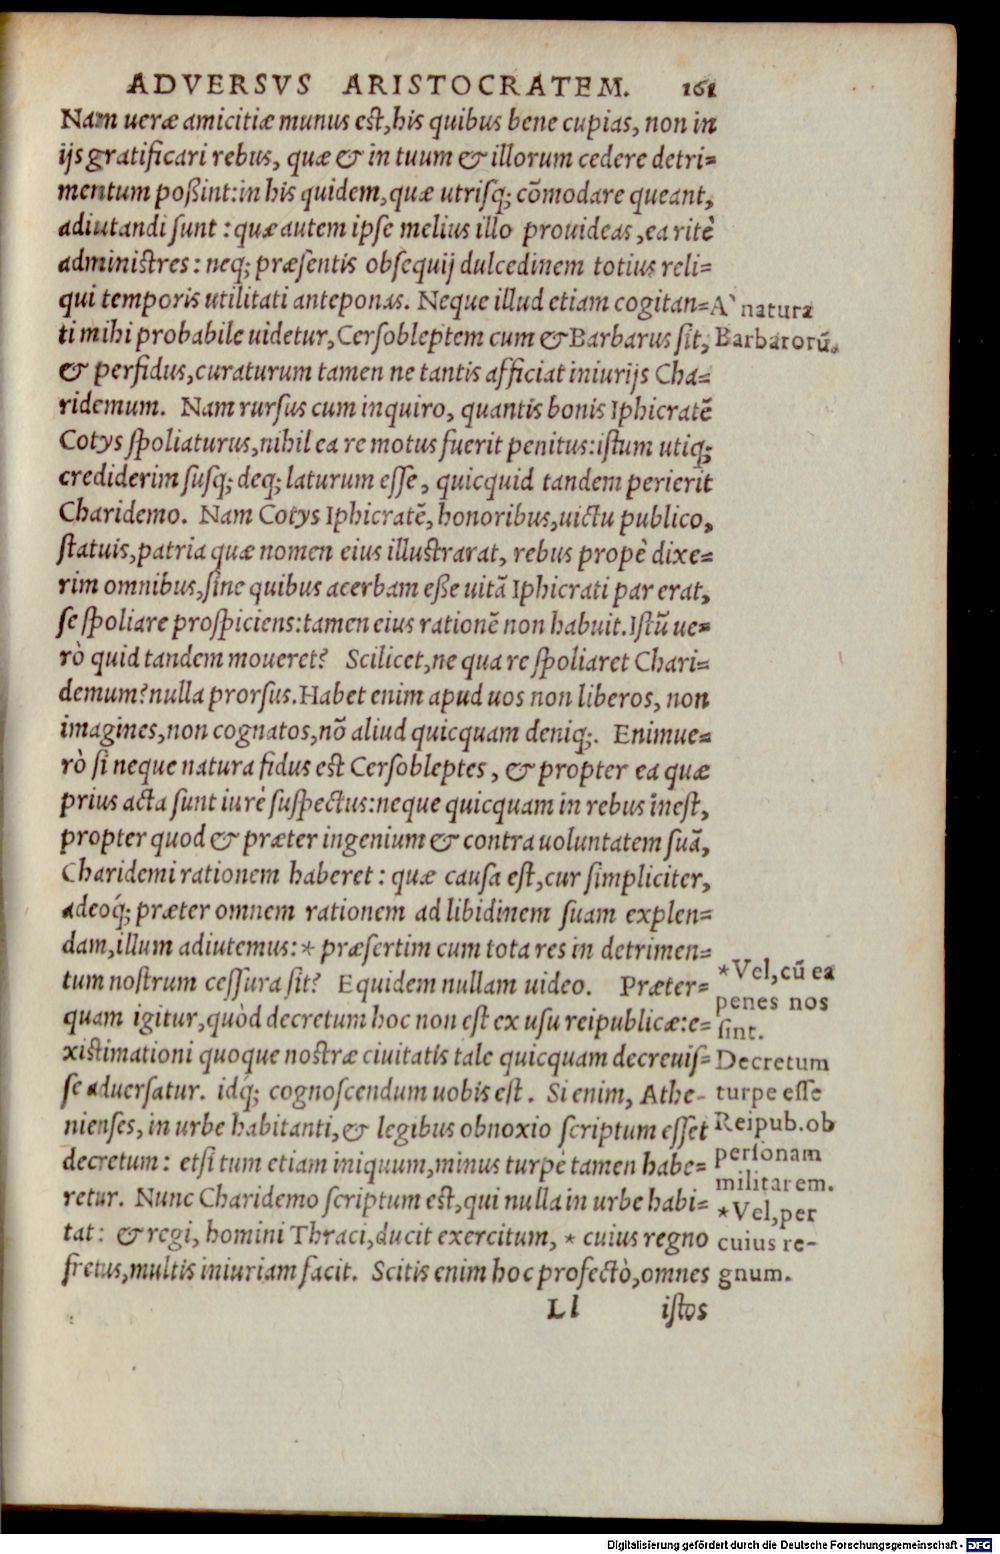 ADVERSVS ARISTOCRATEM. 161
Nam ueræ amicitiæ munus est, his quibus bene cupias, non in
ijs gratificari rebus, quæ & in tuum & illorum cedere detri=
mentum poßint: in his quidem, quæ utrisq; cõmodare queant,
adiutandi sunt: quæ autem ipse melius illo prouideas, ea ritè
administres: neq; præsentis obsequij dulcedinem totius reli=
qui temporis utilitati anteponas. Neque illud etiam cogitan=
ti mihi probabile uidetur, Cersobleptem cum & Barbarus sit,
& perfidus, curaturum tamen ne tantis afficiat iniurijs Cha=
ridemum. Nam rursus cum inquiro, quantis bonis Iphicratẽ
Cotys spoliaturus, nihil ea re motus fuerit penitus: istum utiq;
crediderim susq; deq; laturum esse, quicquid tandem perierit
Charidemo. Nam Cotys Iphicratẽ, honoribus, uictu publico,
statuis, patria quæ nomen eius illustrarat, rebus propè dixe=
rim omnibus, sine quibus acerbam eße uitã Iphicrati par erat,
se spoliare prospiciens: tamen eius rationẽ non habuit. Istũ ue=
rò quid tandem moueret? Scilicet, ne qua re spoliaret Chari=
demum? nulla prorsus. Habet enim apud uos non liberos, non
imagines, non cognatos, nõ aliud quicquam deniq;. Enimue=
rò si neque natura fidus est Cersobleptes, & propter ea quæ
prius acta sunt iurè suspectus: neque quicquam in rebus inest,
propter quod & præter ingenium & contra uoluntatem suã,
Charidemi rationem haberet: quæ causa est, cur simpliciter,
adeoq́; præter omnem rationem ad libidinem suam explen=
dam, illum adiutemus: * præsertim cum tota res in detrimen=
tum nostrum cessura sit? Equidem nullam uideo. Præter=
quam igitur, quòd decretum hoc non est ex usu reipublicæ: e=
xistimationi quoque nostræ ciuitatis tale quicquam decreuis=
se aduersatur. idq; cognoscendum uobis est. Si enim, Athe-
nienses, in urbe habitanti, & legibus obnoxio scriptum esset
decretum: etsi tum etiam iniquum, minus turpè tamen habe=
retur. Nunc Charidemo scriptum est, qui nulla in urbe habi=
tat: & regi, homini Thraci, ducit exercitum, * cuius regno
fretus, multis iniuriam facit. Scitis enim hoc profectò, omnes
Ll istos
A` natura
Barbarorũ.
*Vel, cũ ea
penes nos
sint.
Decretum
turpe esse
Reipub. ob
personam
militarem.
*Vel, per
cuius re-
gnum.
Digitalisierung gefördert durch die Deutsche Forschungsgemeinschaft - DFG